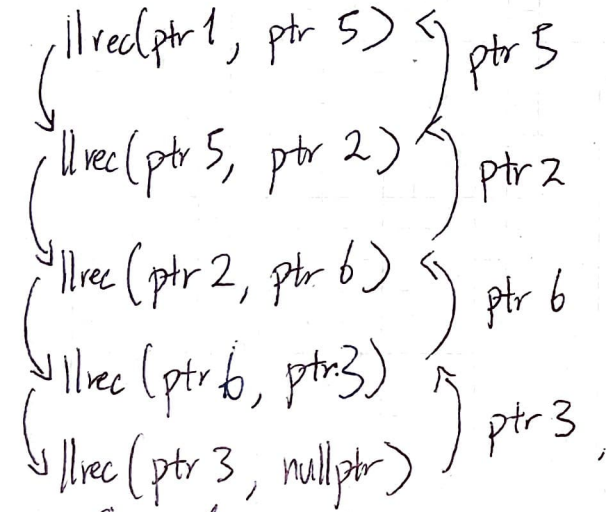 llrec(ptr 1, ptr 5)
ptr 5
llrec(ptr 5, ptr 2)
ptr 2
llrec(ptr 2, ptr 6)
ptr 6
llrec(ptr 6, ptr 3)
ptr 3
llrec(ptr 3, nullptr)